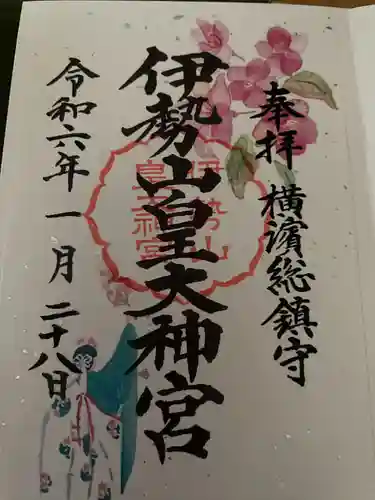 奉拝
横濱総鎮守
伊勢山皇大神宮
伊勢山
皇大神宮
令和六年一月二十八日